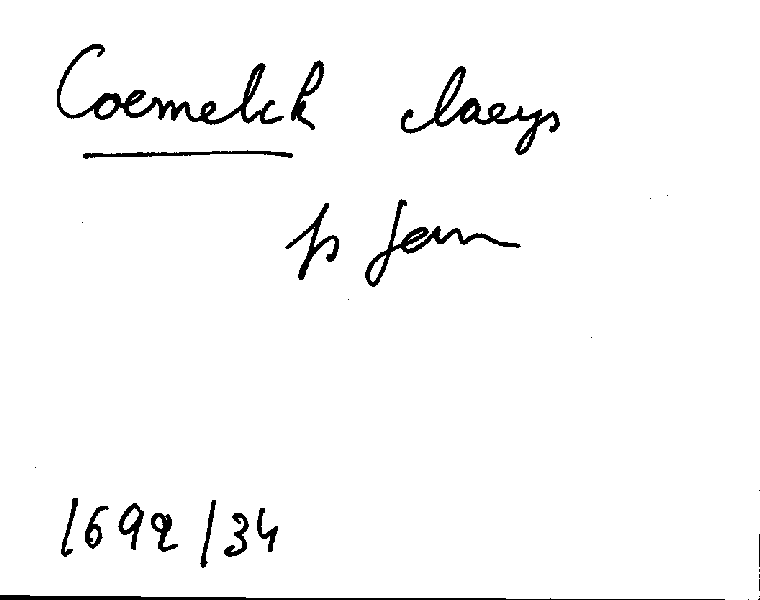 Coemelck claeys
fs Jan
1692/34